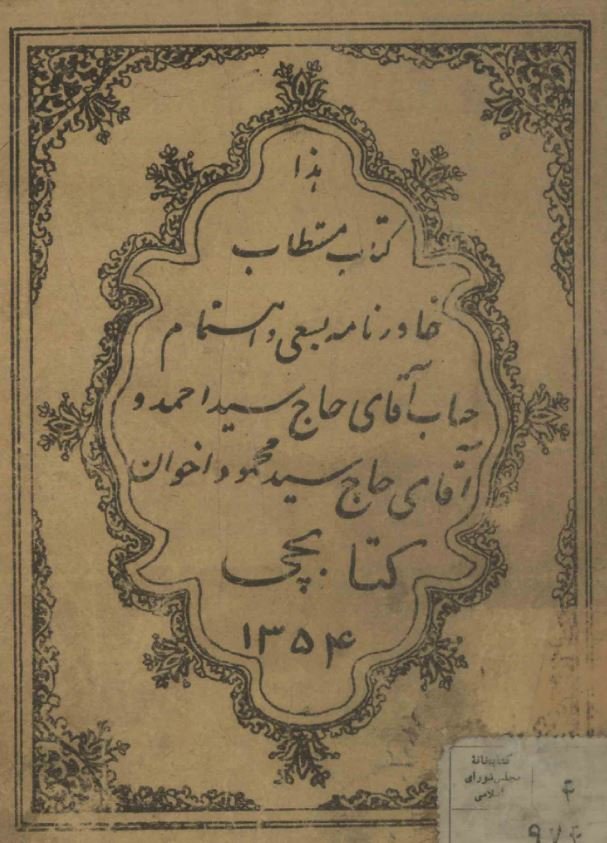 هذا
کتاب مستطاب
خاورنامه بسعی و اهتمام
جناب آقای حاج سید احمد و
آقای حاج سید محمود اخوان
کتابچی
۱۳۵۴
کتابخانهٔ
مجلس شورای
اسلامی
۴